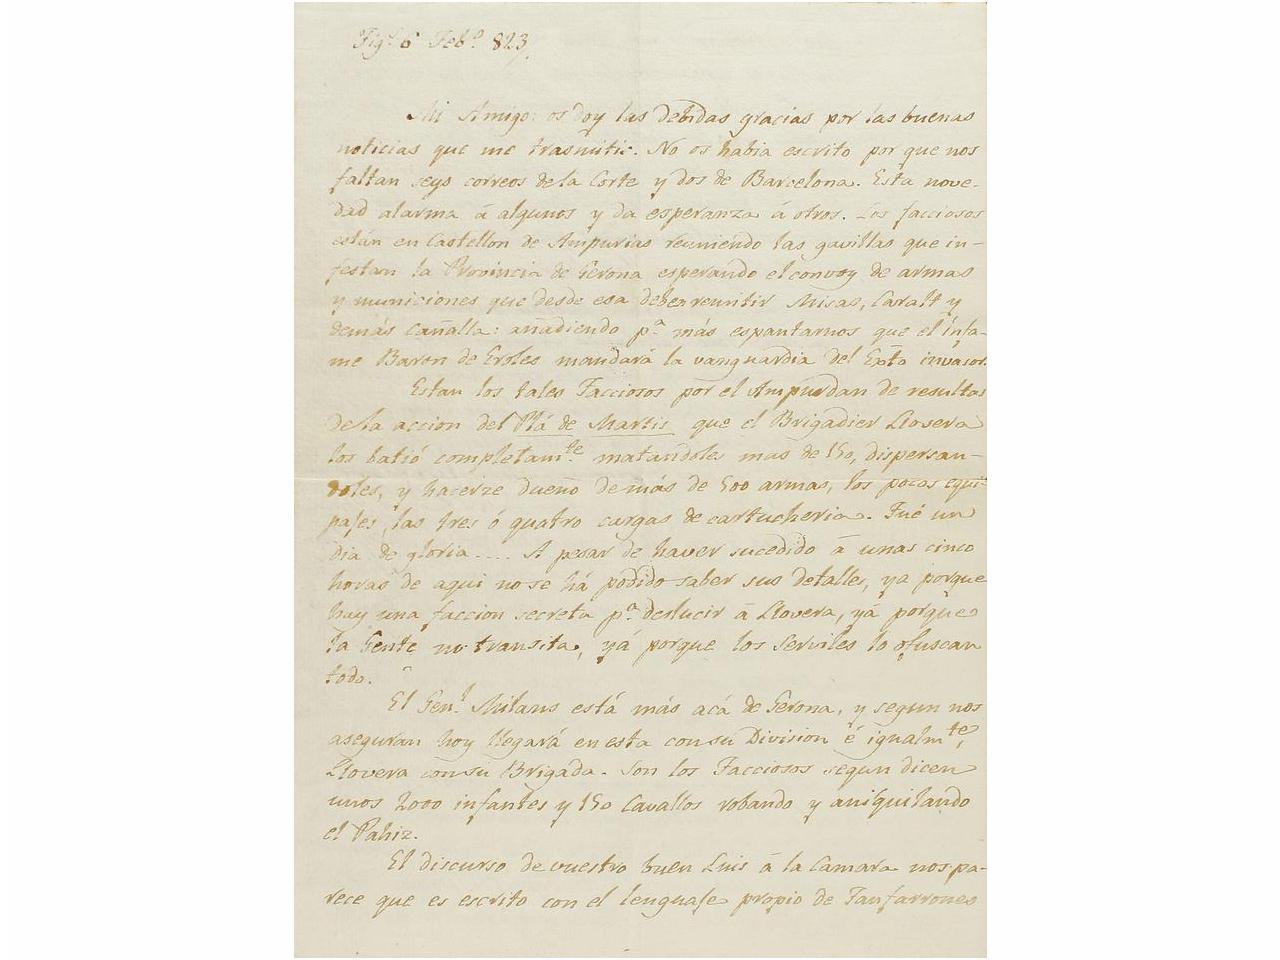 Figs 6 Febo. 823,
Mi Amigo: os doy las debidas gracias por las buenas
noticias que me trasmitis. No os habia escrito por que nos
faltan seys correos de la Corte y dos de Barcelona. Esta nove-
dad alarma á algunos y da esperanza á otros. Los facciosos
están en Castellon de Ampurias reuniendo las gavillas que in-
festan la Provincia de Gerona esperando el convoy de armas
y municiones que desde esa deben remitir Misas, Caralt y
demás Cañalla: añadiendo pa. más espantarnos que el infa-
me Baron de Eroles mandará la vanguardia del Exto invasor.
Estan los tales Facciosos por el Ampurdan de resultas
de la accion del Plá de Martis que el Brigadier Llovera
los batió completamte. matandoles mas de 150, dispersan-
doles, y hacerze dueño de más de 500 armas, los pocos equi-
pajes, las tres ó quatro cargas de cartucheria. Fué un
dia de gloria.... A pesar de haver sucedido á unas cinco
horas de aqui no se há podido saber sus detalles, ya porque
hay una faccion secreta pa. deslucir á Llovera, yá porque
la Gente no transita, yá porque los serviles lo ofuscan
todo.
El Genl. Milans está más acá de Gerona, y segun nos
aseguran hoy llegará en esta con su Division é igualmte,
Llovera con su Brigada. Son los Facciosos segun dicen
unos 2000 infantes y 150 Cavallos robando y aniquilando
el Pahiz.
El discurso de vuestro buen Luis á la Camara nos pa-
rece que es escrito con el lenguaje propio de Fanfarrones